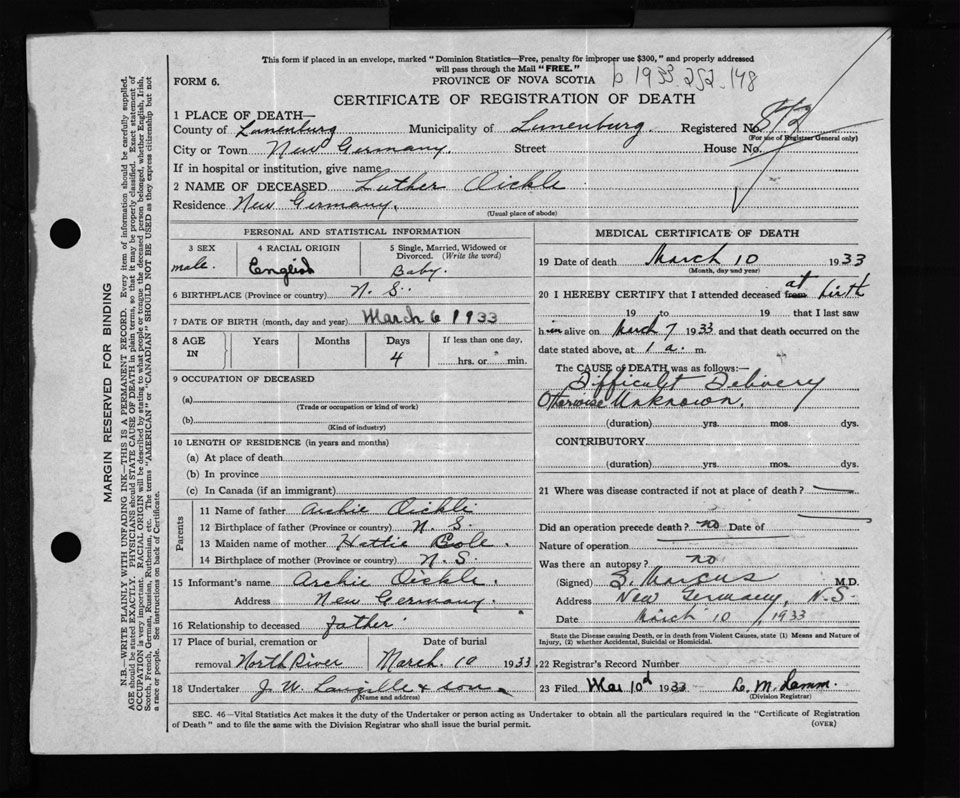 This form if placed in an envelope, marked "Dominion Statistics—Free, penalty for improper use $300," and properly addressed
will pass through the Mail "FREE."
FORM 6.
PROVINCE OF NOVA SCOTIA
1933 252 148
CERTIFICATE OF REGISTRATION OF DEATH
1 PLACE OF DEATH—
County of Lunenburg Municipality of Lunenburg. Registered No.
(For use of Registrar General only)
City or Town New Germany. Street House No.
If in hospital or institution, give name
2 NAME OF DECEASED Luther Oickle
Residence New Germany.
(Usual place of abode)
PERSONAL AND STATISTICAL INFORMATION
3 SEX 4 RACIAL ORIGIN 5 Single, Married, Widowed or Divorced. (Write the word)
male. English Baby.
6 BIRTHPLACE (Province or country) N. S.
7 DATE OF BIRTH (month, day and year) March 6 1933
8 AGE IN Years Months Days If less than one day,
4 hrs. or min.
9 OCCUPATION OF DECEASED
(a)
(Trade or occupation or kind of work)
(b)
(Kind of industry)
10 LENGTH OF RESIDENCE (in years and months)
(a) At place of death
(b) In province
(c) In Canada (if an immigrant)
Parents
11 Name of father Archie Oickle
12 Birthplace of father (Province or country) N. S.
13 Maiden name of mother Hattie Cole.
14 Birthplace of mother (Province or country) N. S.
15 Informant's name Archie Oickle.
Address New Germany.
16 Relationship to deceased father
17 Place of burial, cremation or Date of burial
removal North River March. 10 1933
18 Undertaker J. W. Langille & son
(Name and address)
MEDICAL CERTIFICATE OF DEATH
19 Date of death March 10 1933
(Month, day and year)
20 I HEREBY CERTIFY that I attended deceased from at birth
19 to 19 that I last saw
him alive on March 7 1933 and that death occurred on
date stated above, at 1 a. m.
The CAUSE of DEATH was as follows:—
Difficult Delivery
Otherwise Unknown.
(duration) yrs. mos. dys.
CONTRIBUTORY
(duration) yrs. mos. dys.
21 Where was disease contracted if not at place of death?
Did an operation precede death? no Date of
Nature of operation
Was there an autopsy? no
(Signed) S. Marcus M.D.
Address New Germany, N.S.
Date March 10 1933
State the Disease causing Death, or in death from Violent Causes, state (1) Means and Nature of
Injury, (2) whether Accidental, Suicidal or Homicidal.
22 Registrar's Record Number
23 Filed Mar 10d 1933
(Division Registrar)
SEC. 46—Vital Statistics Act makes it the duty of the Undertaker or person acting as Undertaker to obtain all the particulars required in the "Certificate of Registration
of Death" and to file the same with the Division Registrar who shall issue the burial permit. (OVER)
MARGIN RESERVED FOR BINDING
N.B.—WRITE PLAINLY WITH UNFADING INK—THIS IS A PERMANENT RECORD. Every item of information should be carefully supplied.
AGE should be stated EXACTLY. PHYSICIANS should STATE CAUSE OF DEATH in plain terms, so that it may be properly classified. Exact statement of
OCCUPATION is very important. RACIAL ORIGIN will be described by stating to what people or tongue the deceased person belonged, whether English, Irish,
Scotch, French, German, Russian, Ruthenian, etc. The terms "AMERICAN" or "CANADIAN" SHOULD NOT BE USED as they express citizenship but not
a race or people. See instructions on back of Certificate.